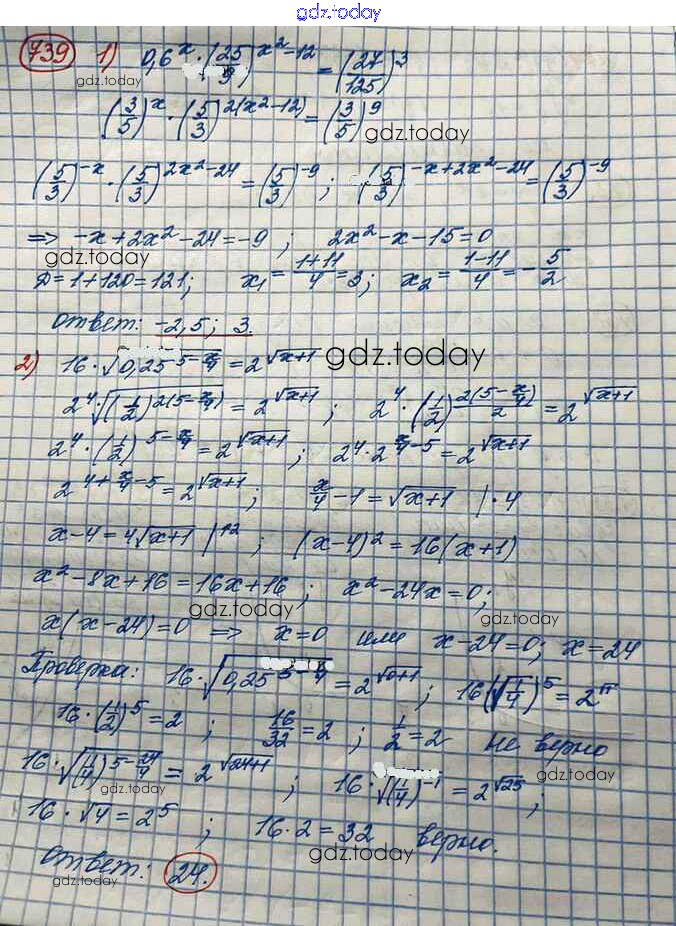 gdz.today
739 1) 0,6^x · (25/9)^(x²-12) = (27/125)³
gdz.today
(3/5)^x · (5/3)^(2(x²-12)) = (3/5)^9
gdz.today
(5/3)^(-x) · (5/3)^(2x²-24) = (5/3)^(-9) ; (5/3)^(-x+2x²-24) = (5/3)^(-9)
=> -x+2x²-24=-9 ; 2x²-x-15=0
gdz.today
D=1+120=121; x₁ = (1+11)/4 = 3; x₂ = (1-11)/4 = -5/2
ответ: -2,5; 3.
2) 16·√(0,25^(5-x/4)) = 2^√(x+1) gdz.today
2⁴·√((1/2)^(2(5-x/4))) = 2^√(x+1) ; 2⁴·(1/2)^(2(5-x/4)/2) = 2^√(x+1)
2⁴·(1/2)^(5-x/4) = 2^√(x+1) ; 2⁴·2^(x/4-5) = 2^√(x+1)
2^(4+x/4-5) = 2^√(x+1) ; x/4-1=√(x+1) |·4
x-4=4√(x+1) |↑2 ; (x-4)²=16(x+1)
x²-8x+16=16x+16 ; x²-24x=0;
gdz.today
gdz.today
x(x-24)=0 => x=0 или x-24=0; x=24
Проверка: 16·√(0,25^(5-0/4)) = 2^√(0+1) ; 16(√(1/4))^5 = 2^√1
gdz.today
16·(1/2)^5=2 ; 16/32=2 ; 1/2=2 не верно
16·√((1/4)^(5-24/4)) = 2^√(24+1) ; 16·√((1/4)^(-1)) = 2^√25 ;
gdz.today
gdz.today
16·√4=2^5 ; 16·2=32 верно.
gdz.today
ответ: 24.
gdz.today